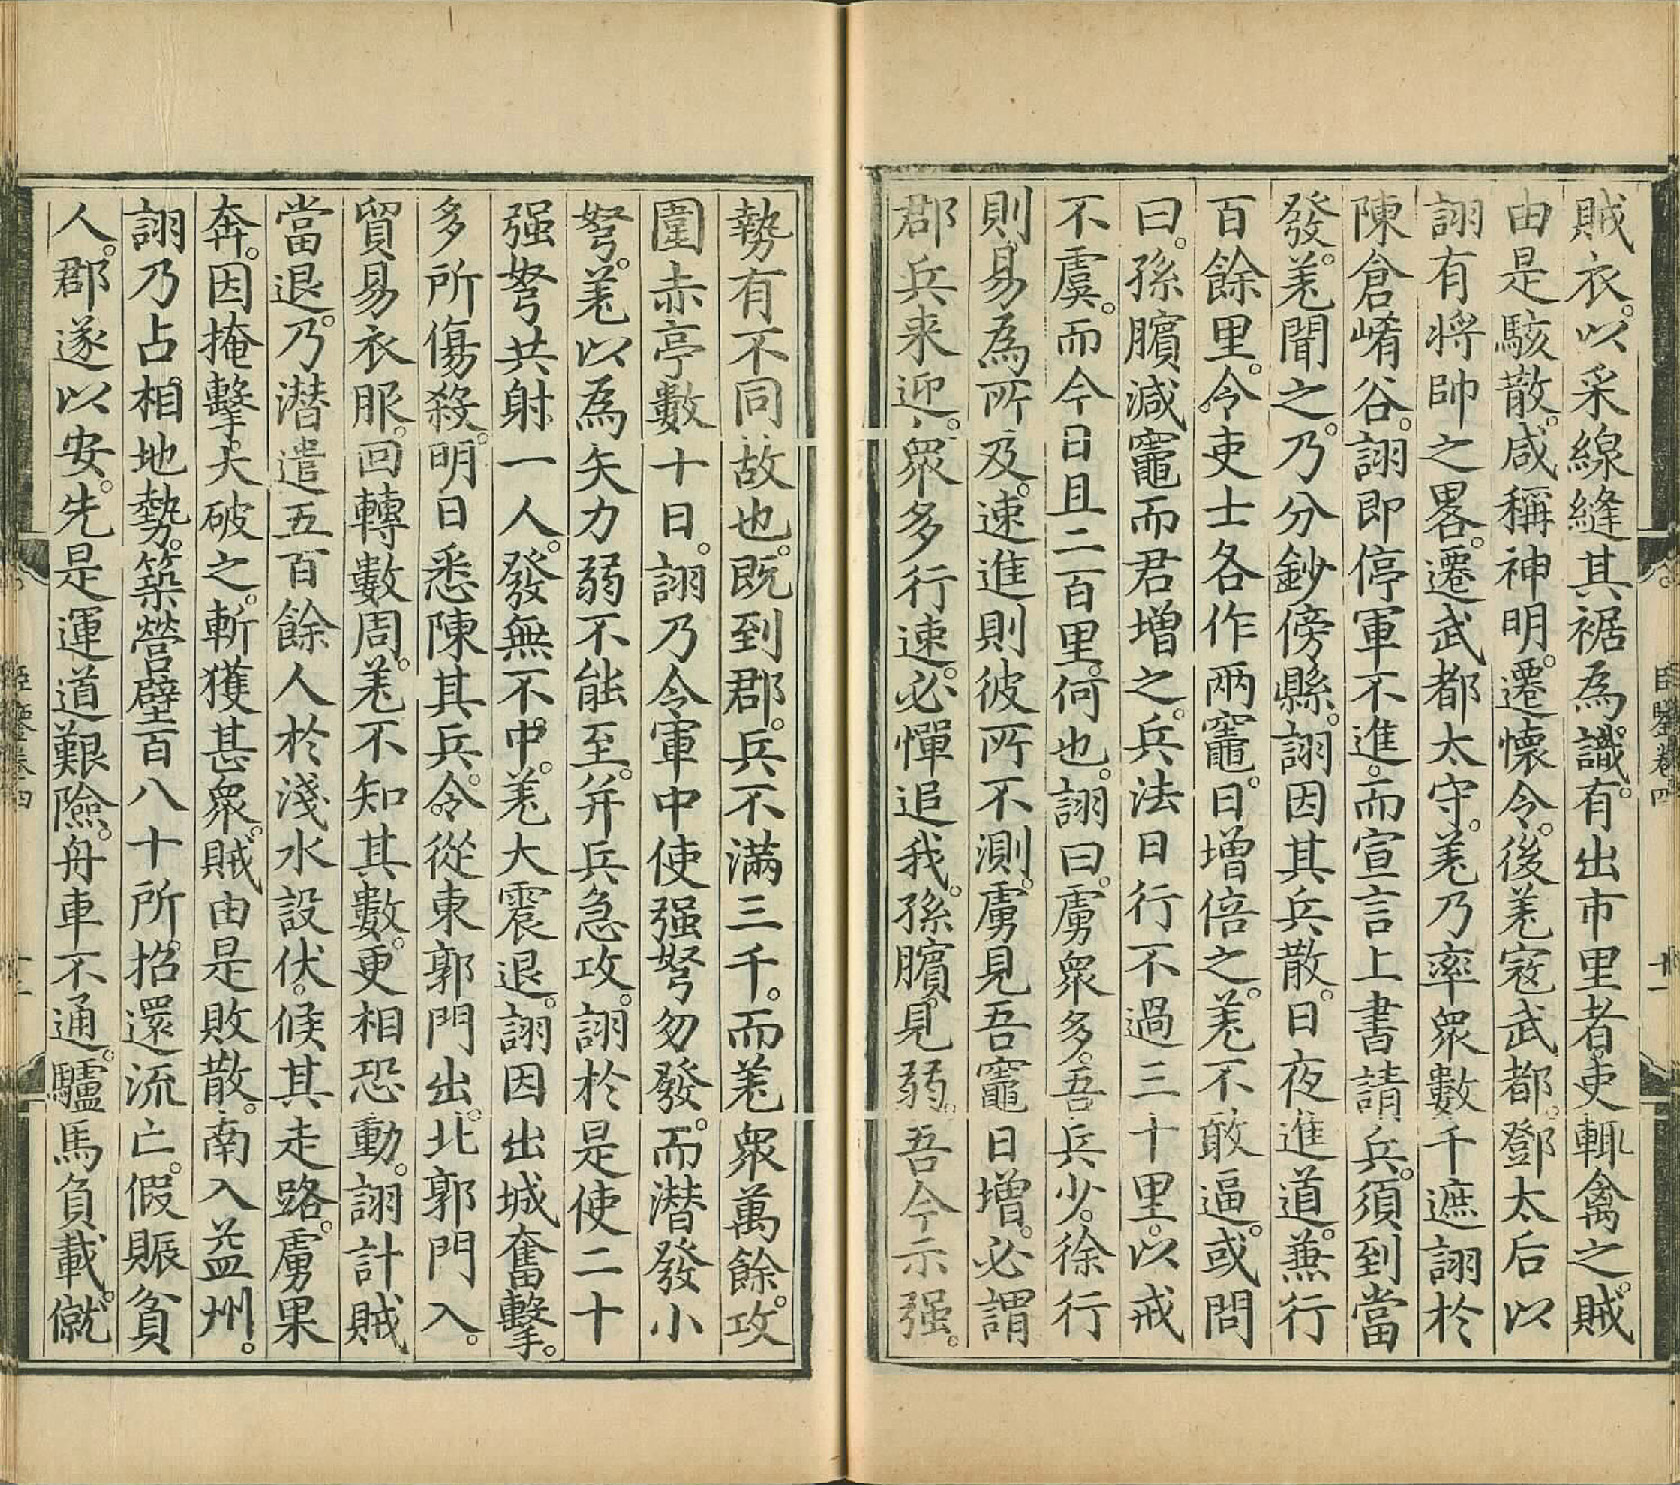 賊衣。以采線縫其裾為識。有出市里者吏輒禽之。賊
由是駭散。咸稱神明。遷懷令。後羌寇武都。鄧太后以
詡有將帥之畧。遷武都太守。羌乃率眾數千遮詡於
陳倉崤谷。詡即停軍不進。而宣言上書請兵。須到當
發。羌聞之。乃分鈔傍縣。詡因其兵散。日夜進道。兼行
百餘里。令吏士各作兩竈。日增倍之。羌不敢逼。或問
曰。孫臏減竈而君增之。兵法日行不過三十里。以戒
不虞。而今日且二百里。何也。詡曰。虜眾多。吾兵少。徐行
則易為所及。速進則彼所不測。虜見吾竈日增。必謂
郡兵来迎。眾多行速。必憚追我。孫臏見弱。吾今示强。
勢有不同故也。既到郡。兵不滿三千。而羌眾萬餘。攻
圍赤亭數十日。詡乃令軍中使强弩勿發。而潛發小
弩。羌以為矢力弱不能至。并兵急攻。詡於是使二十
强弩共射一人。發無不中。羌大震退。詡因出城奮擊。
多所傷殺。明日悉陳其兵。令從東郭門出。北郭門入。
貿易衣服。回轉數周。羌不知其數。更相恐動。詡計賊
當退。乃潛遣五百餘人於淺水設伏。候其走路。虜果
奔。因掩擊。大破之。斬獲甚眾。賊由是敗散。南入益州。
詡乃占相地勢。築營壁百八十所。招還流亡。假賑貧
人。郡遂以安。先是運道艱險。舟車不通。驢馬負載。僦